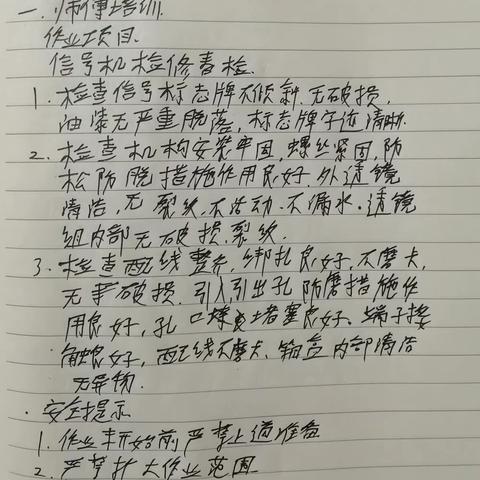 一、师傅培训.
作业项目.
信号机检修春检.
1. 检查信号标志牌不倾斜.无破损,
油漆无严重脱落,标志牌字迹清晰.
2. 检查机构安装牢固,螺丝紧固,防
松防脱措施作用良好.外透镜
清洁,无裂纹.不活动.不漏水.透镜
组内部无破损,裂纹.
3. 检查配线整齐,绑扎良好,不磨卡,
无破损.引入引出孔防磨措施作
用良好,孔口堵塞良好.端子接
触良好,配线不磨卡.箱盒内部清洁
无异物.
· 安全提示
1. 作业未开始前严禁上道准备
2. 严禁扩大作业范围